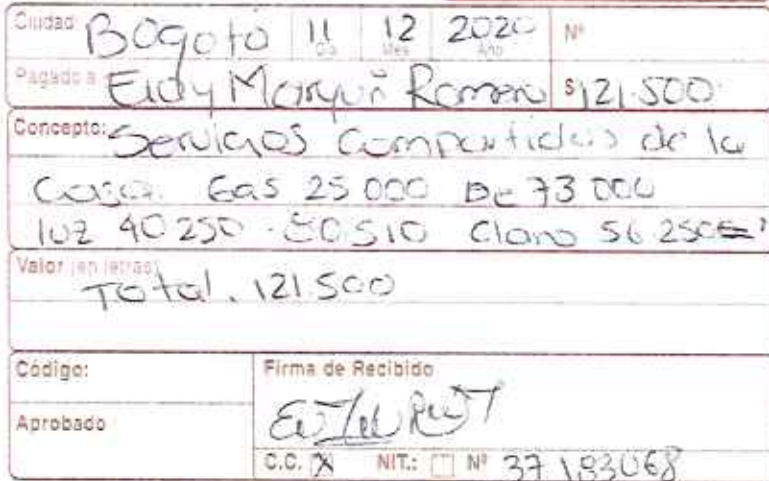 Ciudad Bogotá 11 12 2020 Nº
Día Mes Año
Pagado a Eidy Marquñ Romero $121.500
Concepto: Servicios Compartidos de la
Casa. Gas 25 000 De 73 000
luz 40 250 - 80.510 Claro 56 250
Valor (en letras)
Total. 121.500
Código: Firma de Recibido
Aprobado
C.C. X NIT.: Nº 37 183068